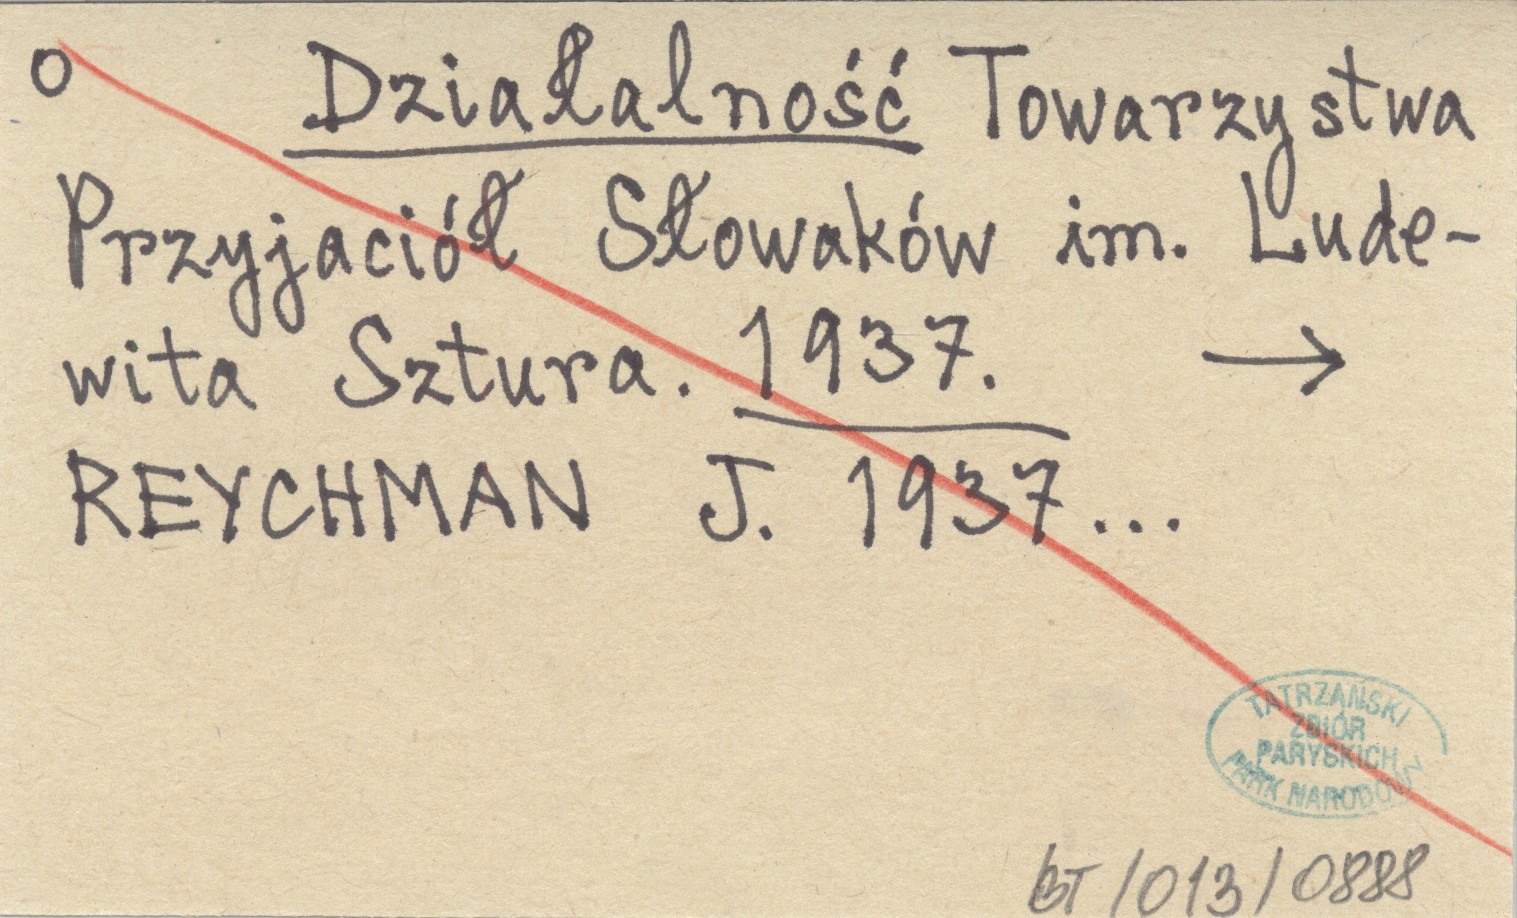 o Działalność Towarzystwa
Przyjaciół Słowaków im. Lude-
wita Sztura. 1937. →
REYCHMAN J. 1937...
TATRZAŃSKI
ZBIÓR
PARYSKICH
PARK NARODOWY
BT/013/0888